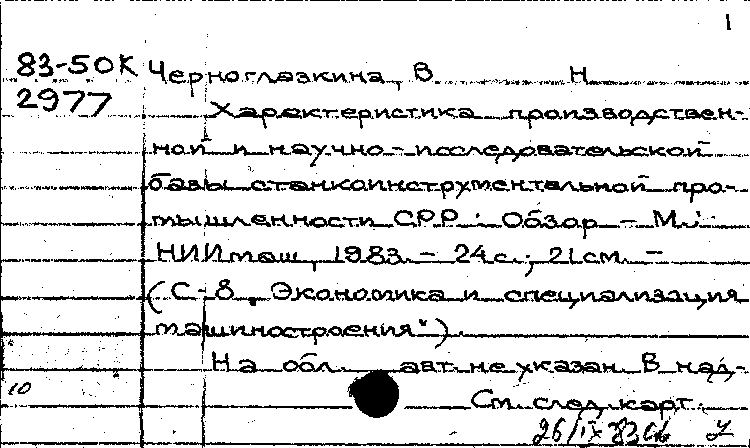 1
83-50К Черноглазкина, В Н
2977 Характеристика производствен-
ной и научно-исследовательской
базы станкоинструментальной про-
мышленности СРР : Обзор - М.:
НИИмаш, 1983. - 24 с.; 21 см. -
(С-8, Экономика и специализация
машиностроения")
На обл. авт. не указан. В над-
10
См след. карт.
26/IX 83